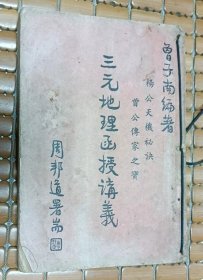 曾子南編著
楊公天機秘訣
曾公傳家之寶
三元地理函授講義
周邦道署耑